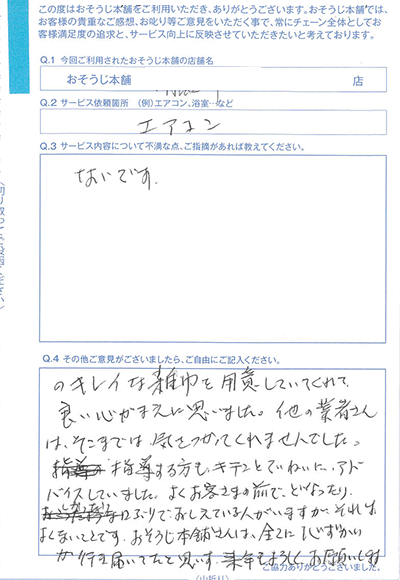 この度はおそうじ本舗をご利用いただき、ありがとうございます。おそうじ本舗では、
お客様の貴重なご感想、お叱り等ご意見をいただく事で、常にチェーン全体としてお
客様満足度の追求と、サービス向上に反映させていただきたいと考えております。
Q.1 今回ご利用されたおそうじ本舗の店舗名
おそうじ本舗 店
Q.2 サービス依頼箇所 (例)エアコン、浴室…など
エアコン
Q.3 サービス内容について不満な点、ご指摘があれば教えてください。
ないです.
Q.4 その他ご意見がございましたら、ご自由にご記入ください。
のキレイな雑巾を用意していてくれて
良い心がまえに思いました。他の業者さん
は、そこまでは気をつかってくれませんでした。
指導する方も、キチンとていねいに、アド
バイスしていました。よくお客さまの前で、どなったり、
口ぶりでおしえている人がいますが、それは
よくないことです。おそうじ本舗さんは、全てに
が行き届いてたと思います。来年もよろしくお願いします
ご協力ありがとうございました。